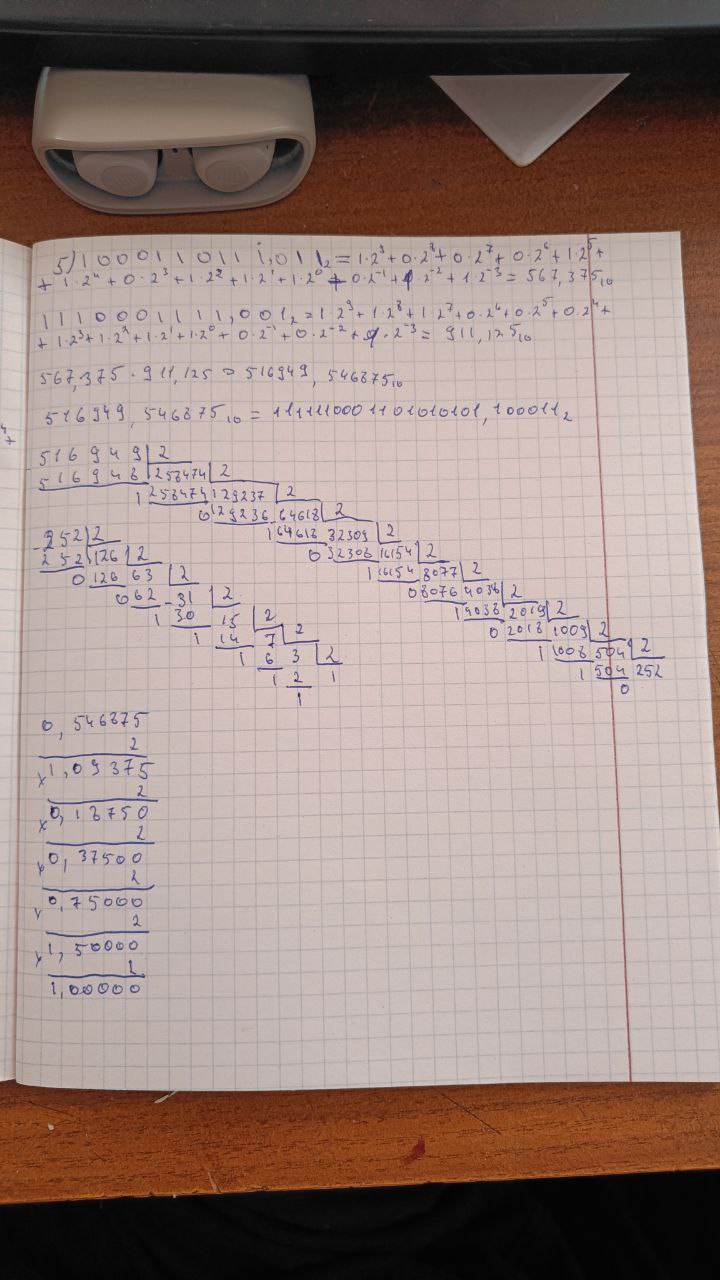 5) 1000110111,011₂ = 1·2⁹ + 0·2⁸ + 0·2⁷ + 0·2⁶ + 1·2⁵ +
+ 1·2⁴ + 0·2³ + 1·2² + 1·2¹ + 1·2⁰ + 0·2⁻¹ + 1·2⁻² + 1·2⁻³ = 567,375₁₀
1110001111,001₂ = 1·2⁹ + 1·2⁸ + 1·2⁷ + 0·2⁶ + 0·2⁵ + 0·2⁴ +
+ 1·2³ + 1·2² + 1·2¹ + 1·2⁰ + 0·2⁻¹ + 0·2⁻² + 1·2⁻³ = 911,125₁₀
567,375 · 911,125 = 516949,546875₁₀
516949,546875₁₀ = 1111110001101010101,100011₂
516949 2
516948 258474 2
1 258474 129237 2
0 129236 64618 2
1 64618 32309 2
0 32308 16154 2
1 16154 8077 2
0 8076 4038 2
1 4038 2019 2
0 2018 1009 2
1 1008 504 2
1 504 252
0
-252 2
252 126 2
0 126 63 2
0 62 -31 2
1 30 15 2
1 14 7 2
1 6 3 2
1 2 1
1
0,546875
2
1,09375
2
x0,18750
2
x0,37500
2
x0,75000
2
x1,50000
2
1,00000